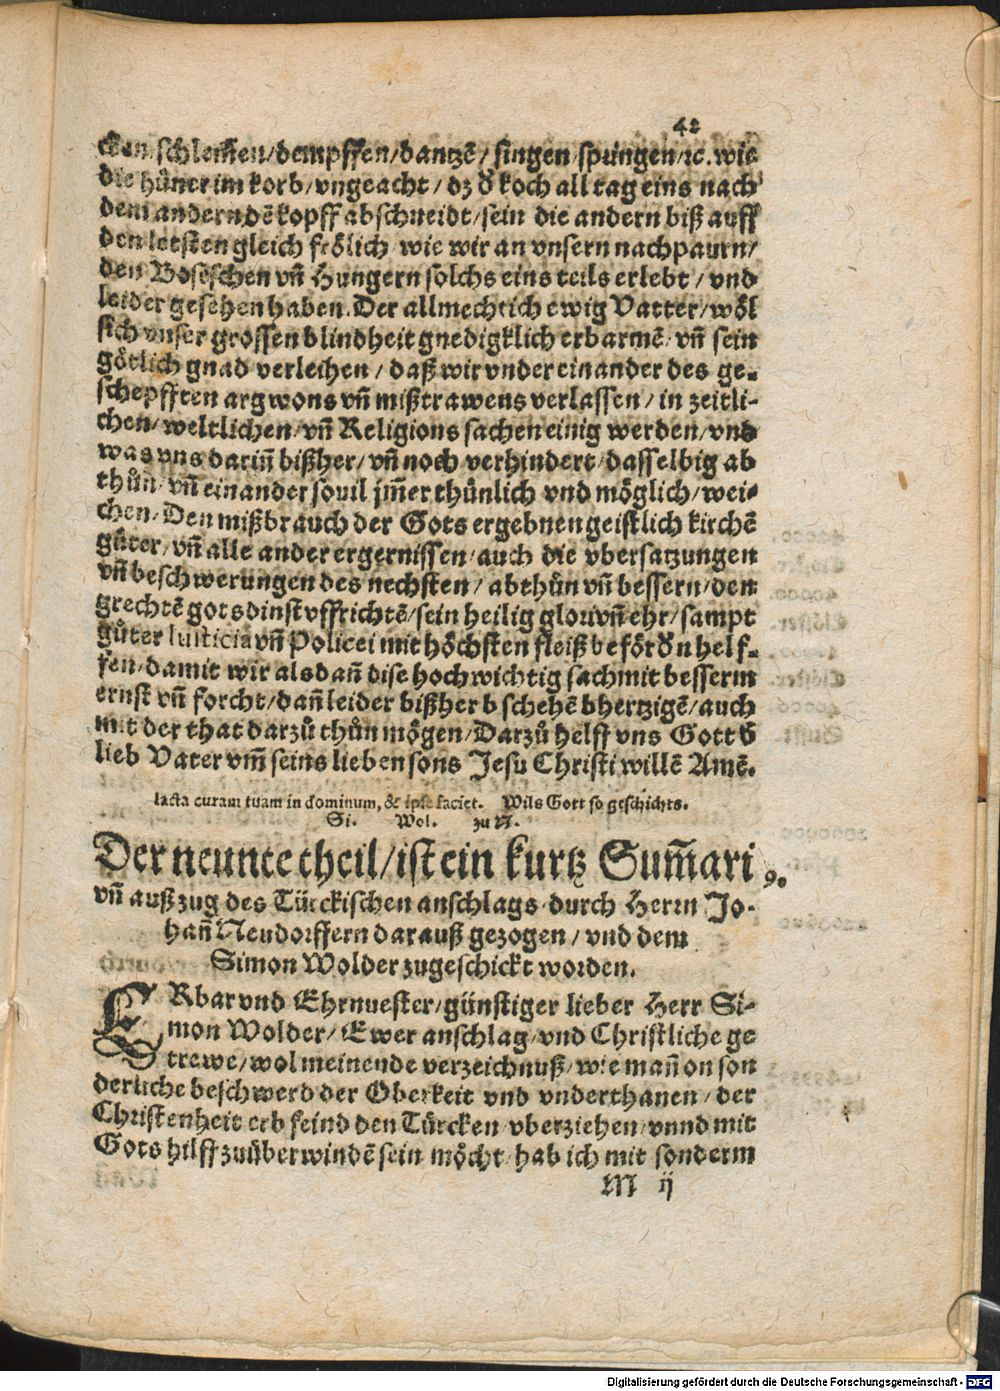 42
cken schlemen/dempffen/dantzē/ singen/springen/ꝛc. wie
die hüner im korb/vngeacht/ dz ð koch all tag eins nach
dem andern dē kopff abschneidt/sein die andern biß auff
den letsten gleich frölich wie wir an vnsern nachpaurn/
den Boseschen vñ Hungern solchs eins teils erlebt/ vnd
leider gesehen haben. Der allmechtich ewig Vatter/wöl
sich vnser grossen blindheit gnedigklich erbarmē/vñ sein
götlich gnad verleihen/ daß wir vnder einander des ge-
schepfften argwons vñ mißtrawens verlassen/ in zeitli-
chen/weltlichen/vñ Religions sachen einig werden/vnd
was vns dariñ bißher/vñ noch verhindert/dasselbig ab
thůn/vñ einander souil jm̃er thůnlich vnd möglich/wei-
chen/Den mißbrauch der Gots ergebnen geistlich kirchē
güter/vñ alle ander ergernissen/auch die vbersatzungen
vñ beschwerungen des nechsten/ abthůn vñ bessern/den
grechtē gotsdinst vffrichtē/sein heilig glori vñ ehr/sampt
gůter Iusticia vñ Policei mit höchsten fleiß beförðn helf-
fen/damit wir alsdañ dise hochwichtig sach mit besserm
ernst vñ forcht/dañ leider bißher bschehē bhertzigē/auch
mit der that darzů thůn mögen/Darzů helff vns Gott ð
lieb Vater vm̃ seins lieben sons Jesu Christi willē Amē.
Iacta curam tuam in dominum, & ipse faciet. Wils Gott so geschichts.
Si. Wol. zu N.
Der neunte theil/ist ein kurtz Sum̃ari 9.
vñ außzug des Türckischen anschlags durch Herrn Jo-
hañ Neudorffern darauß gezogen/ vnd dem
Simon Wolder zugeschickt worden.
ERbar vnd Ehrnuester/günstiger lieber Herr Si-
mon Wolder/ Ewer anschlag/vnd Christliche ge
trewe/wolmeinende verzeichnuß/wie mañ on son
derliche beschwerd der Oberkeit vnd vnderthanen/der
Christenheit erbfeind den Türcken vberziehen/vnnd mit
Gots hilff zuüberwindē sein möcht/hab ich mit sonderm
M ij
Digitalisierung gefördert durch die Deutsche Forschungsgemeinschaft - DFG